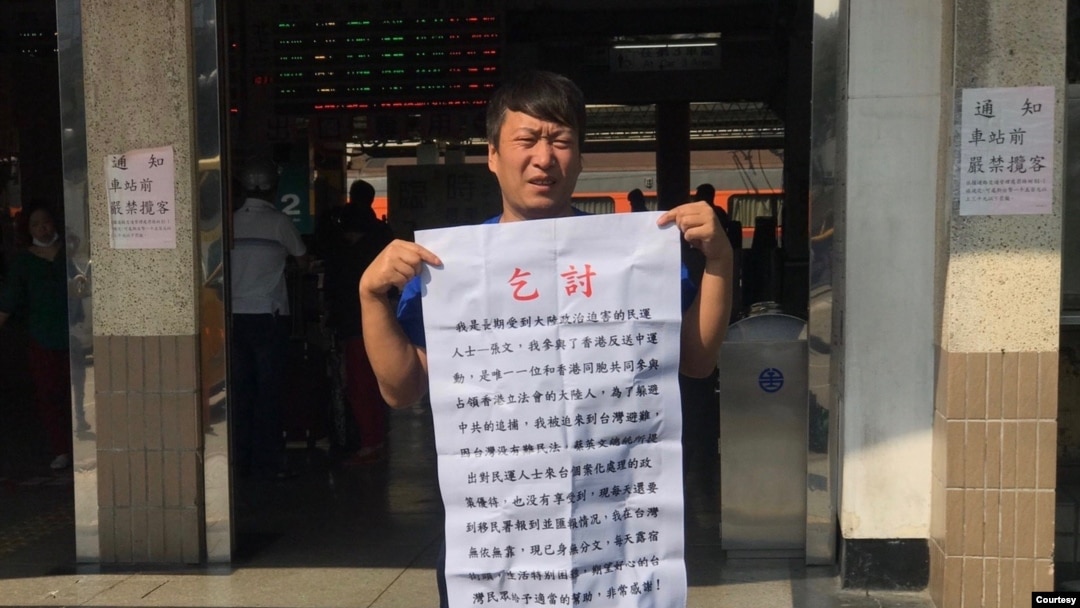 通 知
車站前
嚴禁攬客
2
通 知
車站前
嚴禁攬客
乞討
我是長期受到大陸政治迫害的民運
人士—張文，我參與了香港反送中運
動，是唯一一位和香港同胞共同參與
占領香港立法會的大陸人，為了躲避
中共的追捕，我被迫來到台灣避難，
因台灣没有難民法，蔡英文總統所提
出對民運人士來台個案化處理的政
策優待，也没有享受到，現每天還要
到移民署報到並匯報情况，我在台灣
無依無靠，現已身無分文，每天露宿
街頭，生活特別困難，期望好心的台
灣民眾給予適當的幫助，非常感謝！
Courtesy